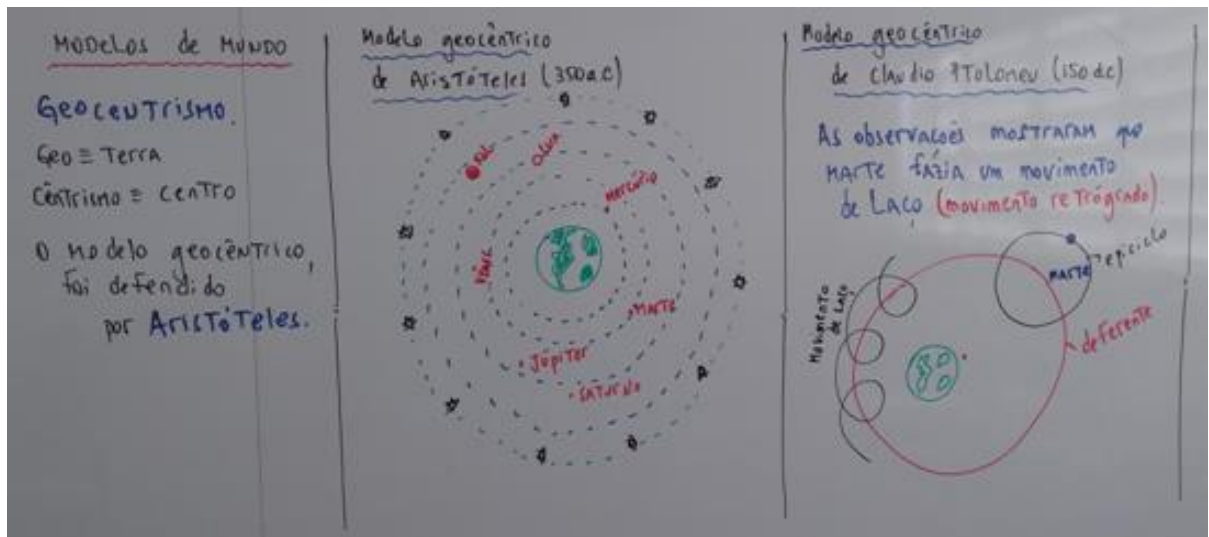 MODELOS de MUNDO
GEOCENTRISMO.
Geo ≡ Terra
Cêntrismo ≡ centro
O modelo geocêntrico,
foi defendido
por Aristóteles.
Modelo geocêntrico
de Aristóteles (350 a.c)
SOL
LUA
MERCÚRIO
VÊNUS
MARTE
JÚPITER
SATURNO
Modelo geocêntrico
de Claudio Ptolomeu (150 d.c)
As observações mostraram que
MARTE fazia um movimento
de Laço (movimento retrógrado).
MARTE
epiciclo
Movimento
de Laço
deferente